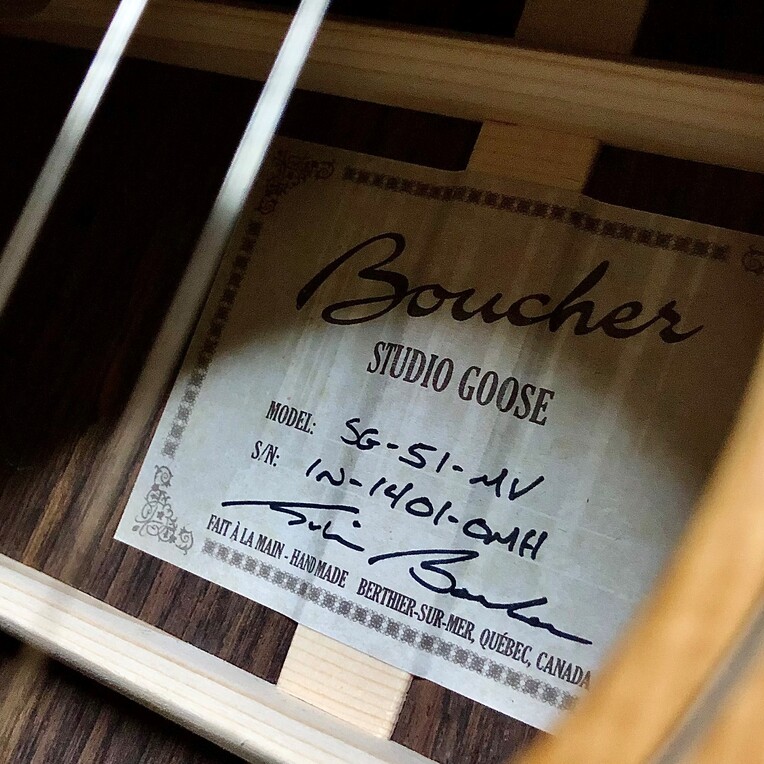 Boucher
STUDIO GOOSE
MODEL: SG-51-MV
S/N: IN-1401-OMH
FAIT À LA MAIN - HANDMADE BERTHIER-SUR-MER, QUÉBEC, CANADA